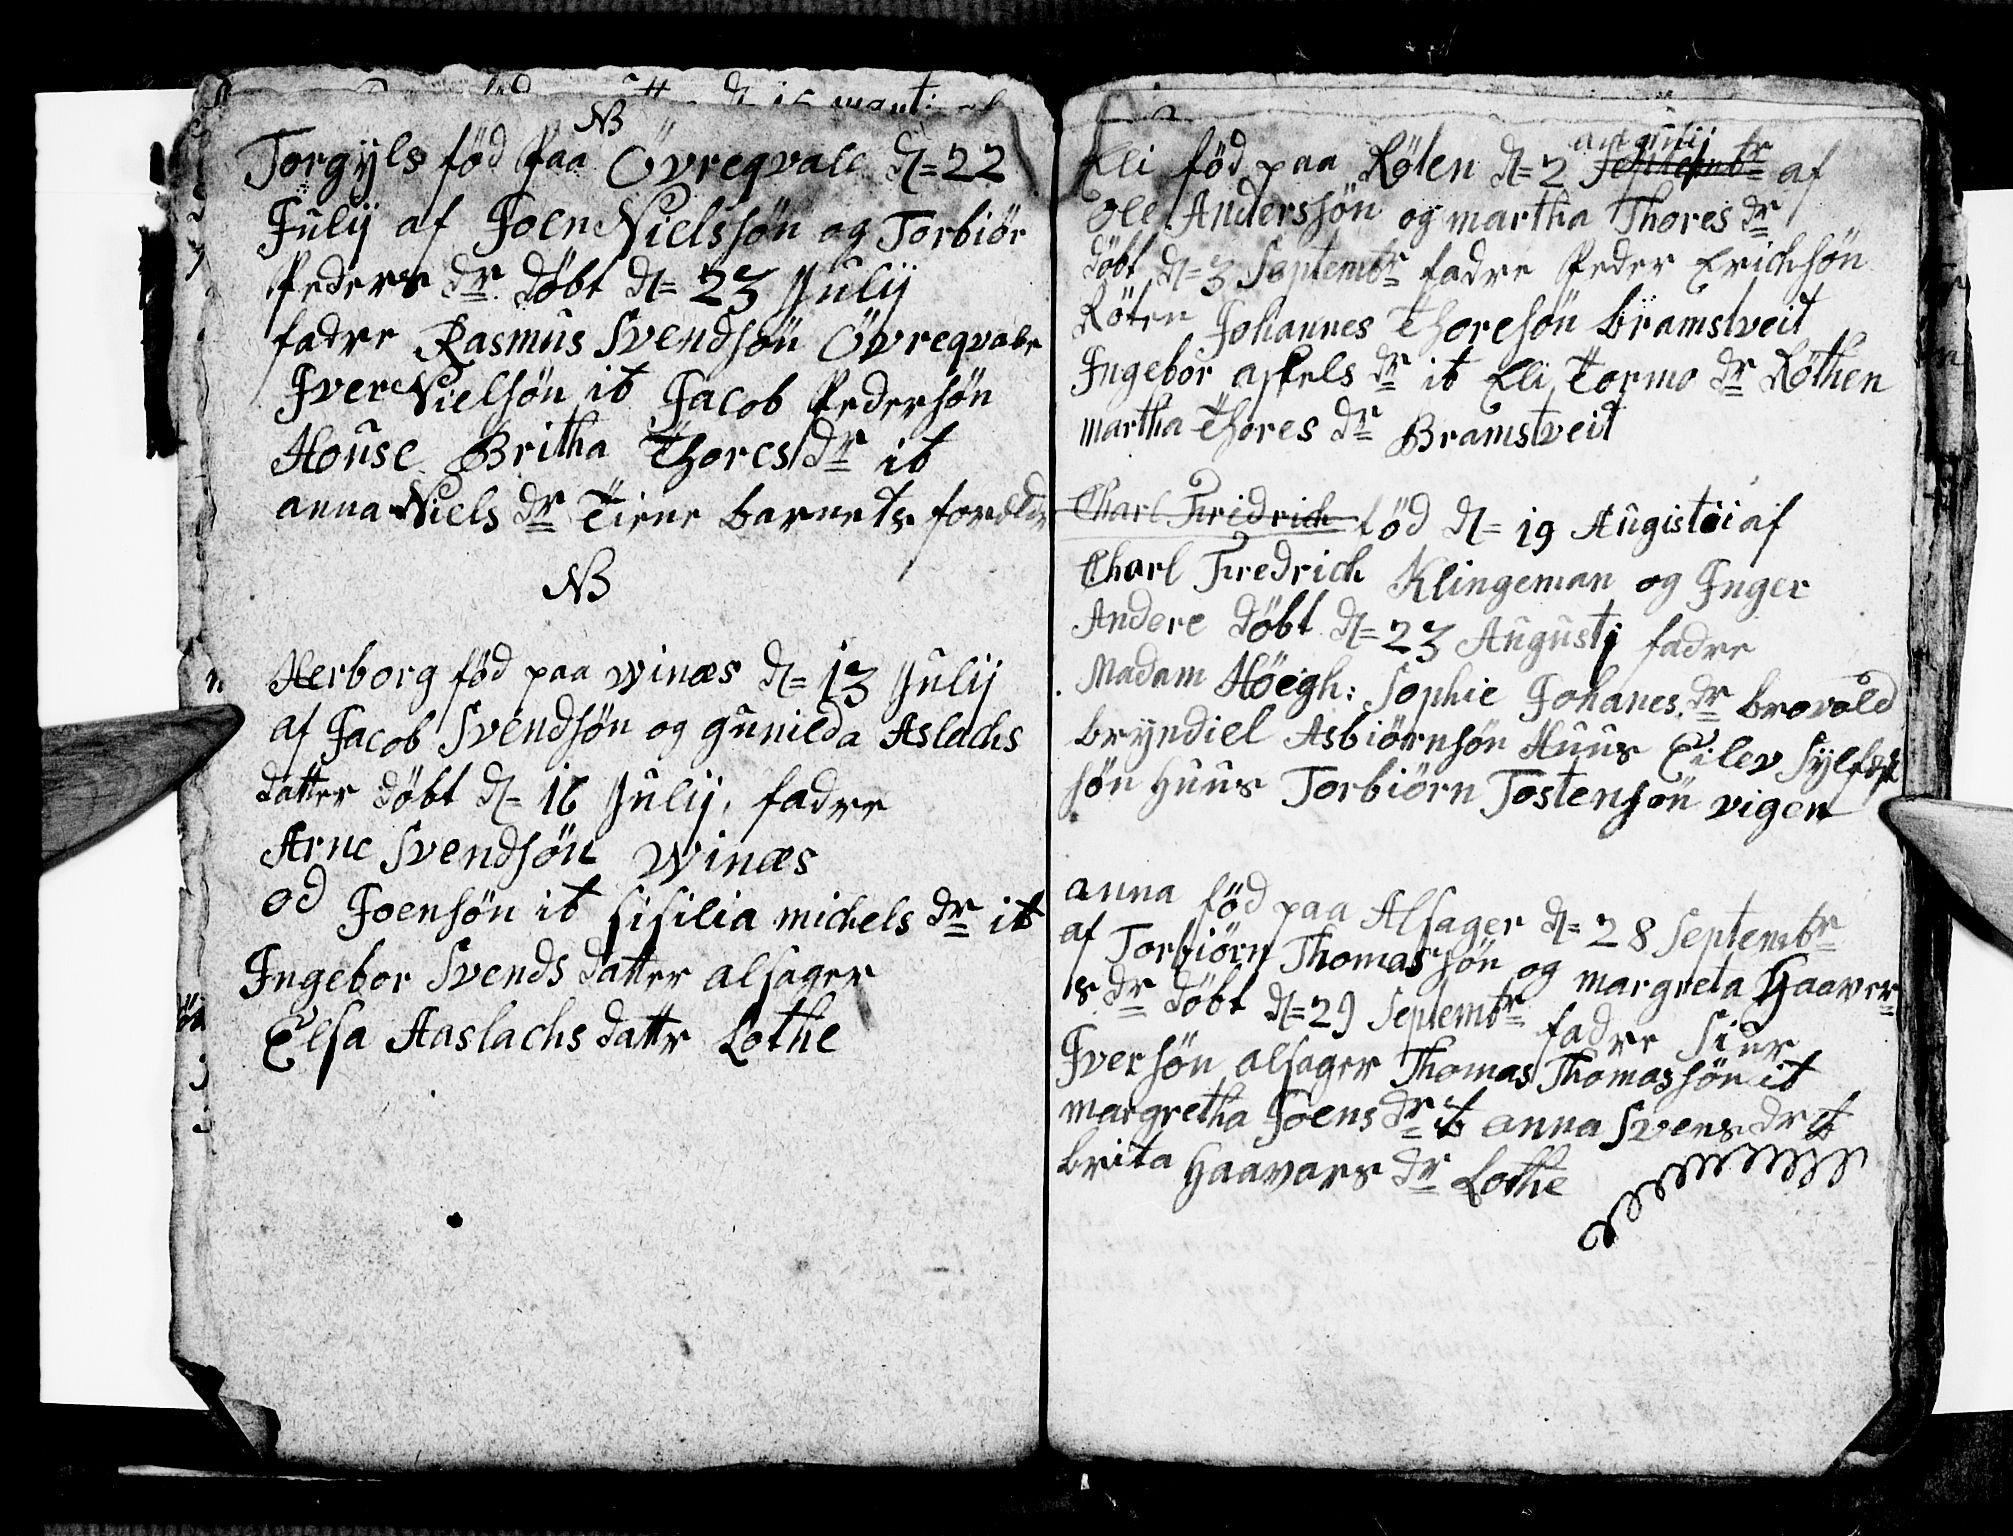 NB
Torgyls fød paa Øvreqvale d= 22
Julij af Joen Nielssøn og Torbiør
Peders dr døbt d= 23 Julij
fadre Rasmus Svendsøn Øvreqvale
Iver Nielsøn it Jacob Pedersøn
House Britha Thores dr it
anna Niels dr Tiene barnets foreldr
NB
Herborg fød paa Winæs d= 13 Julij
af Jacob Svendsøn og gunilda Aslachs
datter døbt d= 16 Julij, fadre
Arne Svendsøn Winæs
od Joensøn it sisilia michels dr it
Ingebor Svends datter alsager
Elsa Aaslachs dattr Lothe
augustj
Eli fød paa Røten d= 2 Septembr af
Ole Anderssøn og martha Thores dr
døbt d= 3 Septembr fadre Peder Erichsøn
Røten Johannes Thoresøn bramstveit
Ingebor aslels dr it Eli Tormo dr Røthen
martha Thores dr Bramstveit
Charl Fridrich fød d= 19 Augistii af
Charl Fredrich Klingeman og Inger
Andere døbt d= 23 Augustj fadre
Madam Høegh: Sophie Johanes dr brovold
bryndiel Asbiørnsøn Huus Eilev Sylfest
søn Huus Torbiørn Tostensøn vigen
anna fød paa Alsager d= 28 Septembr
af Torbiørn Thomassøn og margreta Haaver
s dr døbt d= 29 Septembr fadre Siur
Iversøn alsager Thomas Thomassøn it
margretha Joens dr it anna Svens dr it
brita Haavars dr Lothe